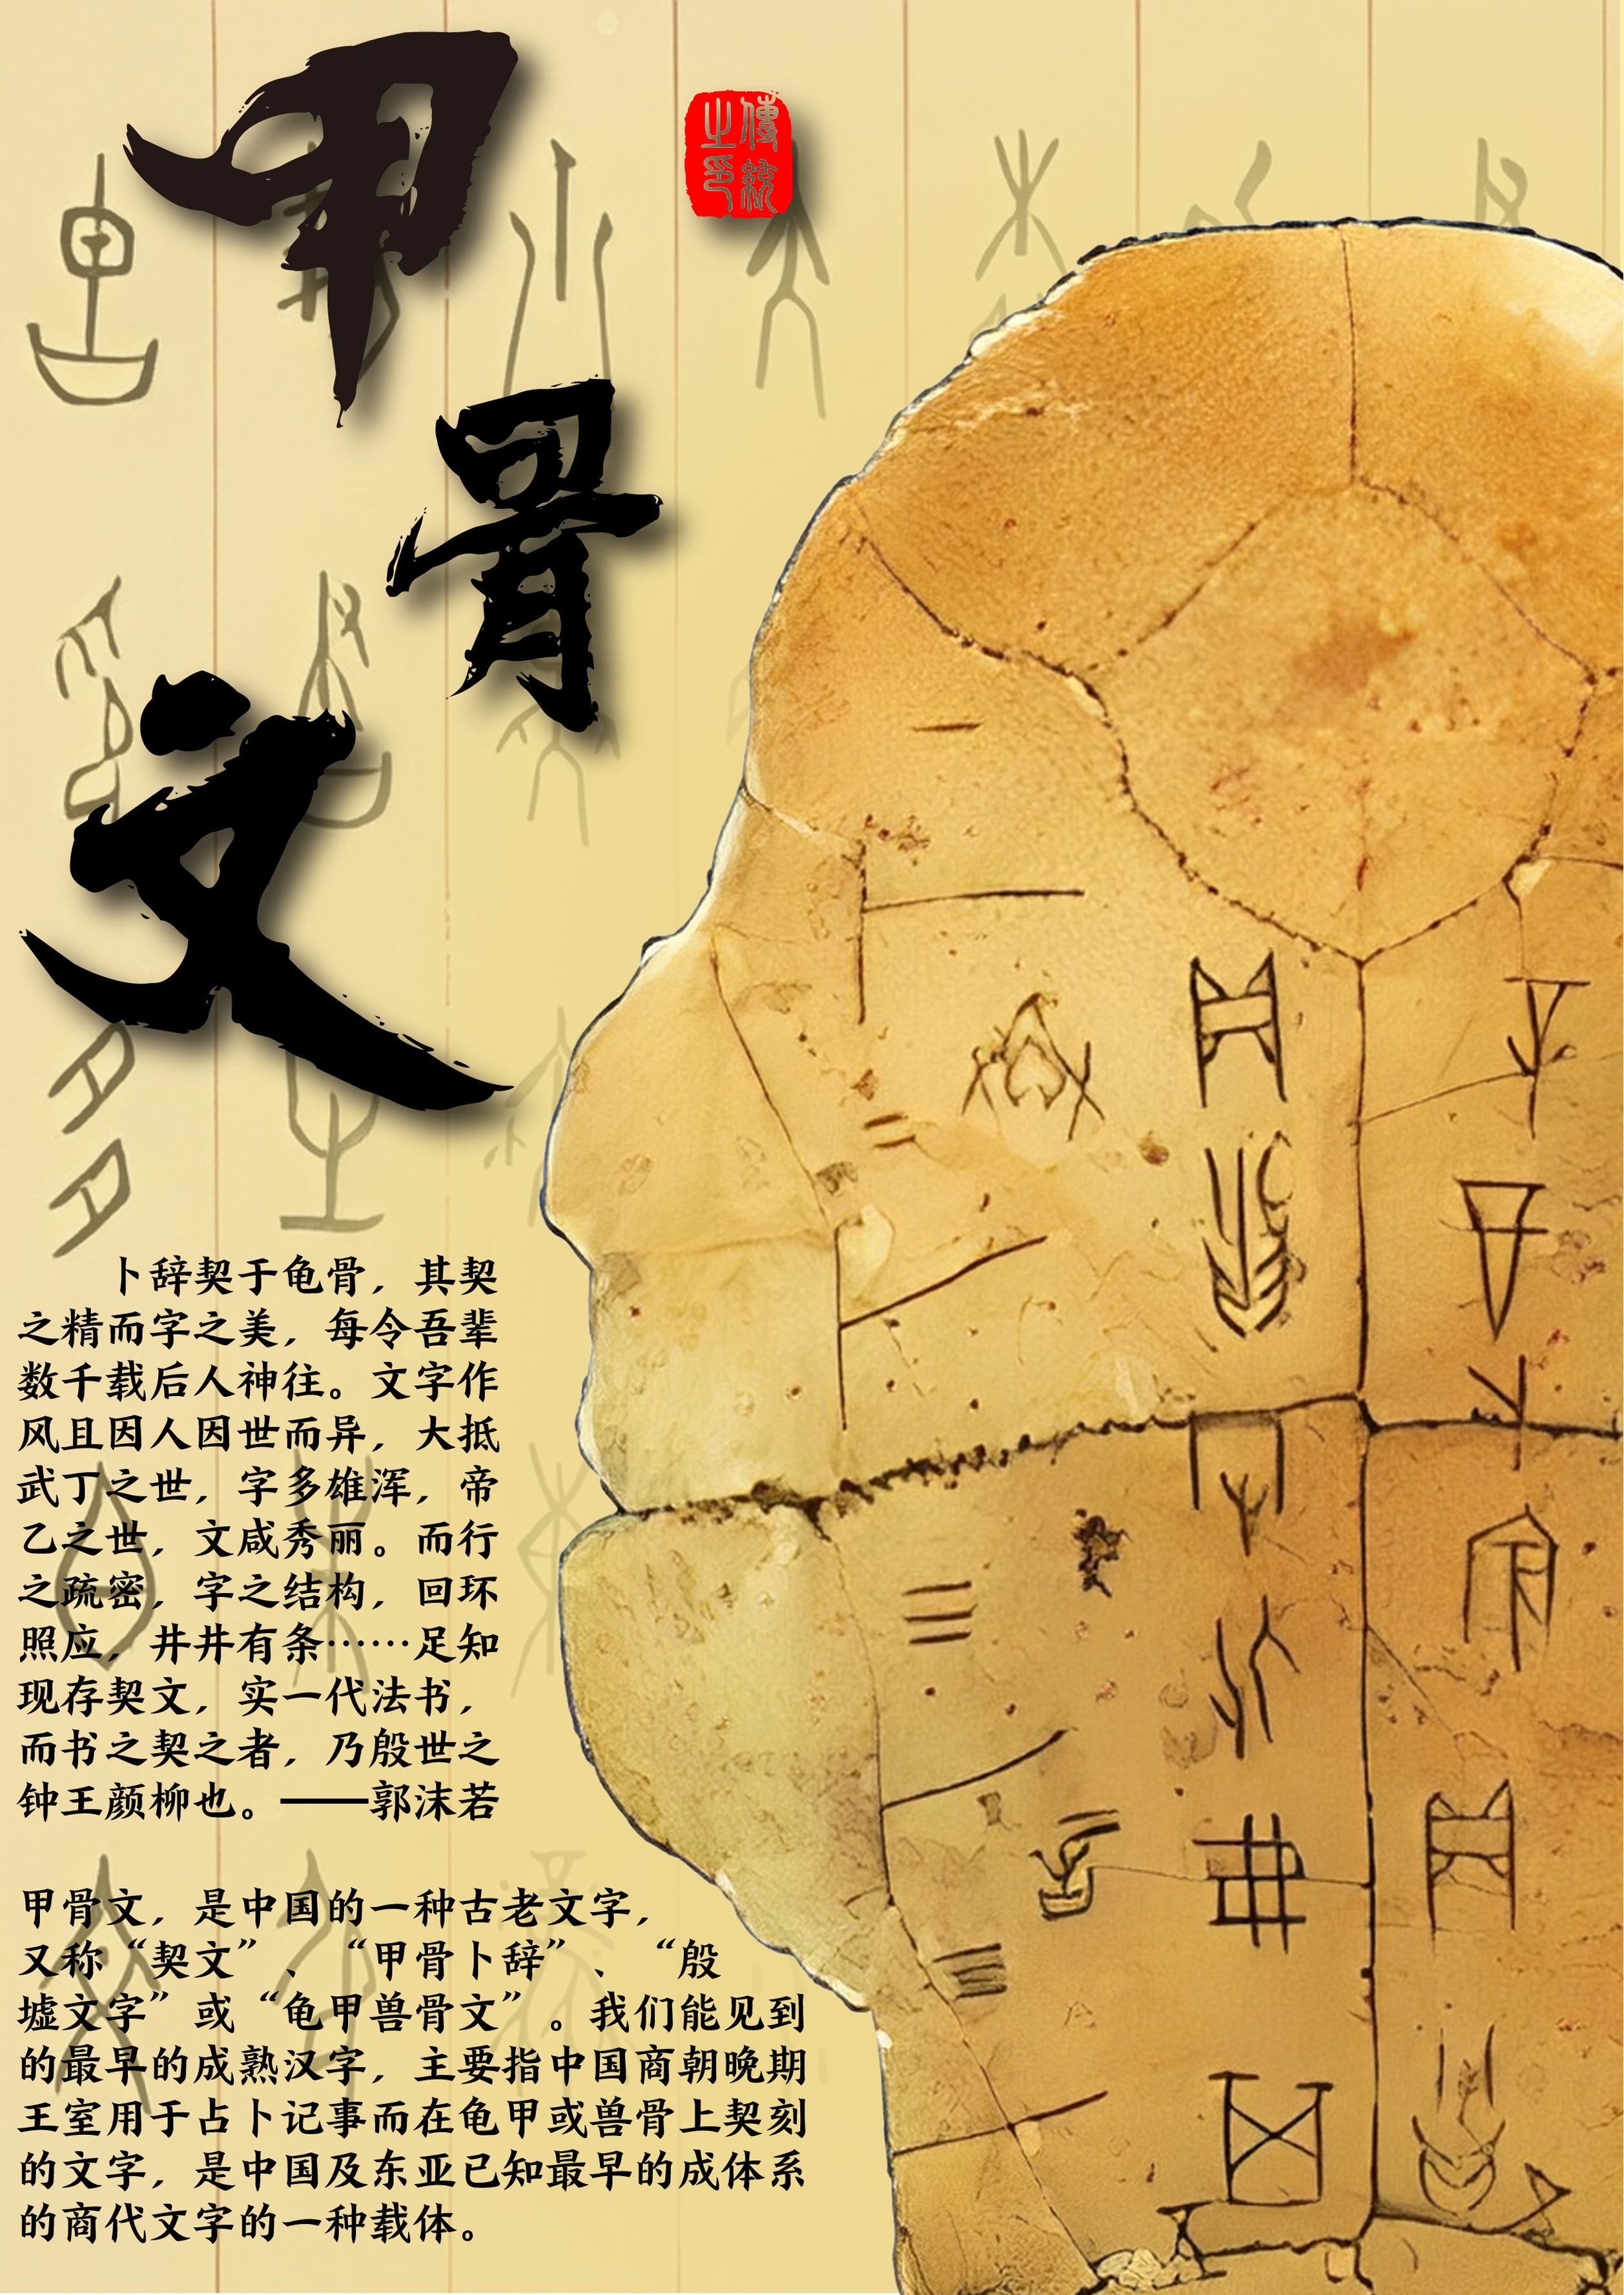 甲
骨
文
傳統
之印
卜辞契于龟骨，其契
之精而字之美，每令吾辈
数千载后人神往。文字作
风且因人因世而异，大抵
武丁之世，字多雄浑，帝
乙之世，文咸秀丽。而行
之疏密，字之结构，回环
照应，井井有条……足知
现存契文，实一代法书，
而书之契之者，乃殷世之
钟王颜柳也。——郭沫若
甲骨文，是中国的一种古老文字，
又称“契文”、“甲骨卜辞”、“殷
墟文字”或“龟甲兽骨文”。我们能见到
的最早的成熟汉字，主要指中国商朝晚期
王室用于占卜记事而在龟甲或兽骨上契刻
的文字，是中国及东亚已知最早的成体系
的商代文字的一种载体。